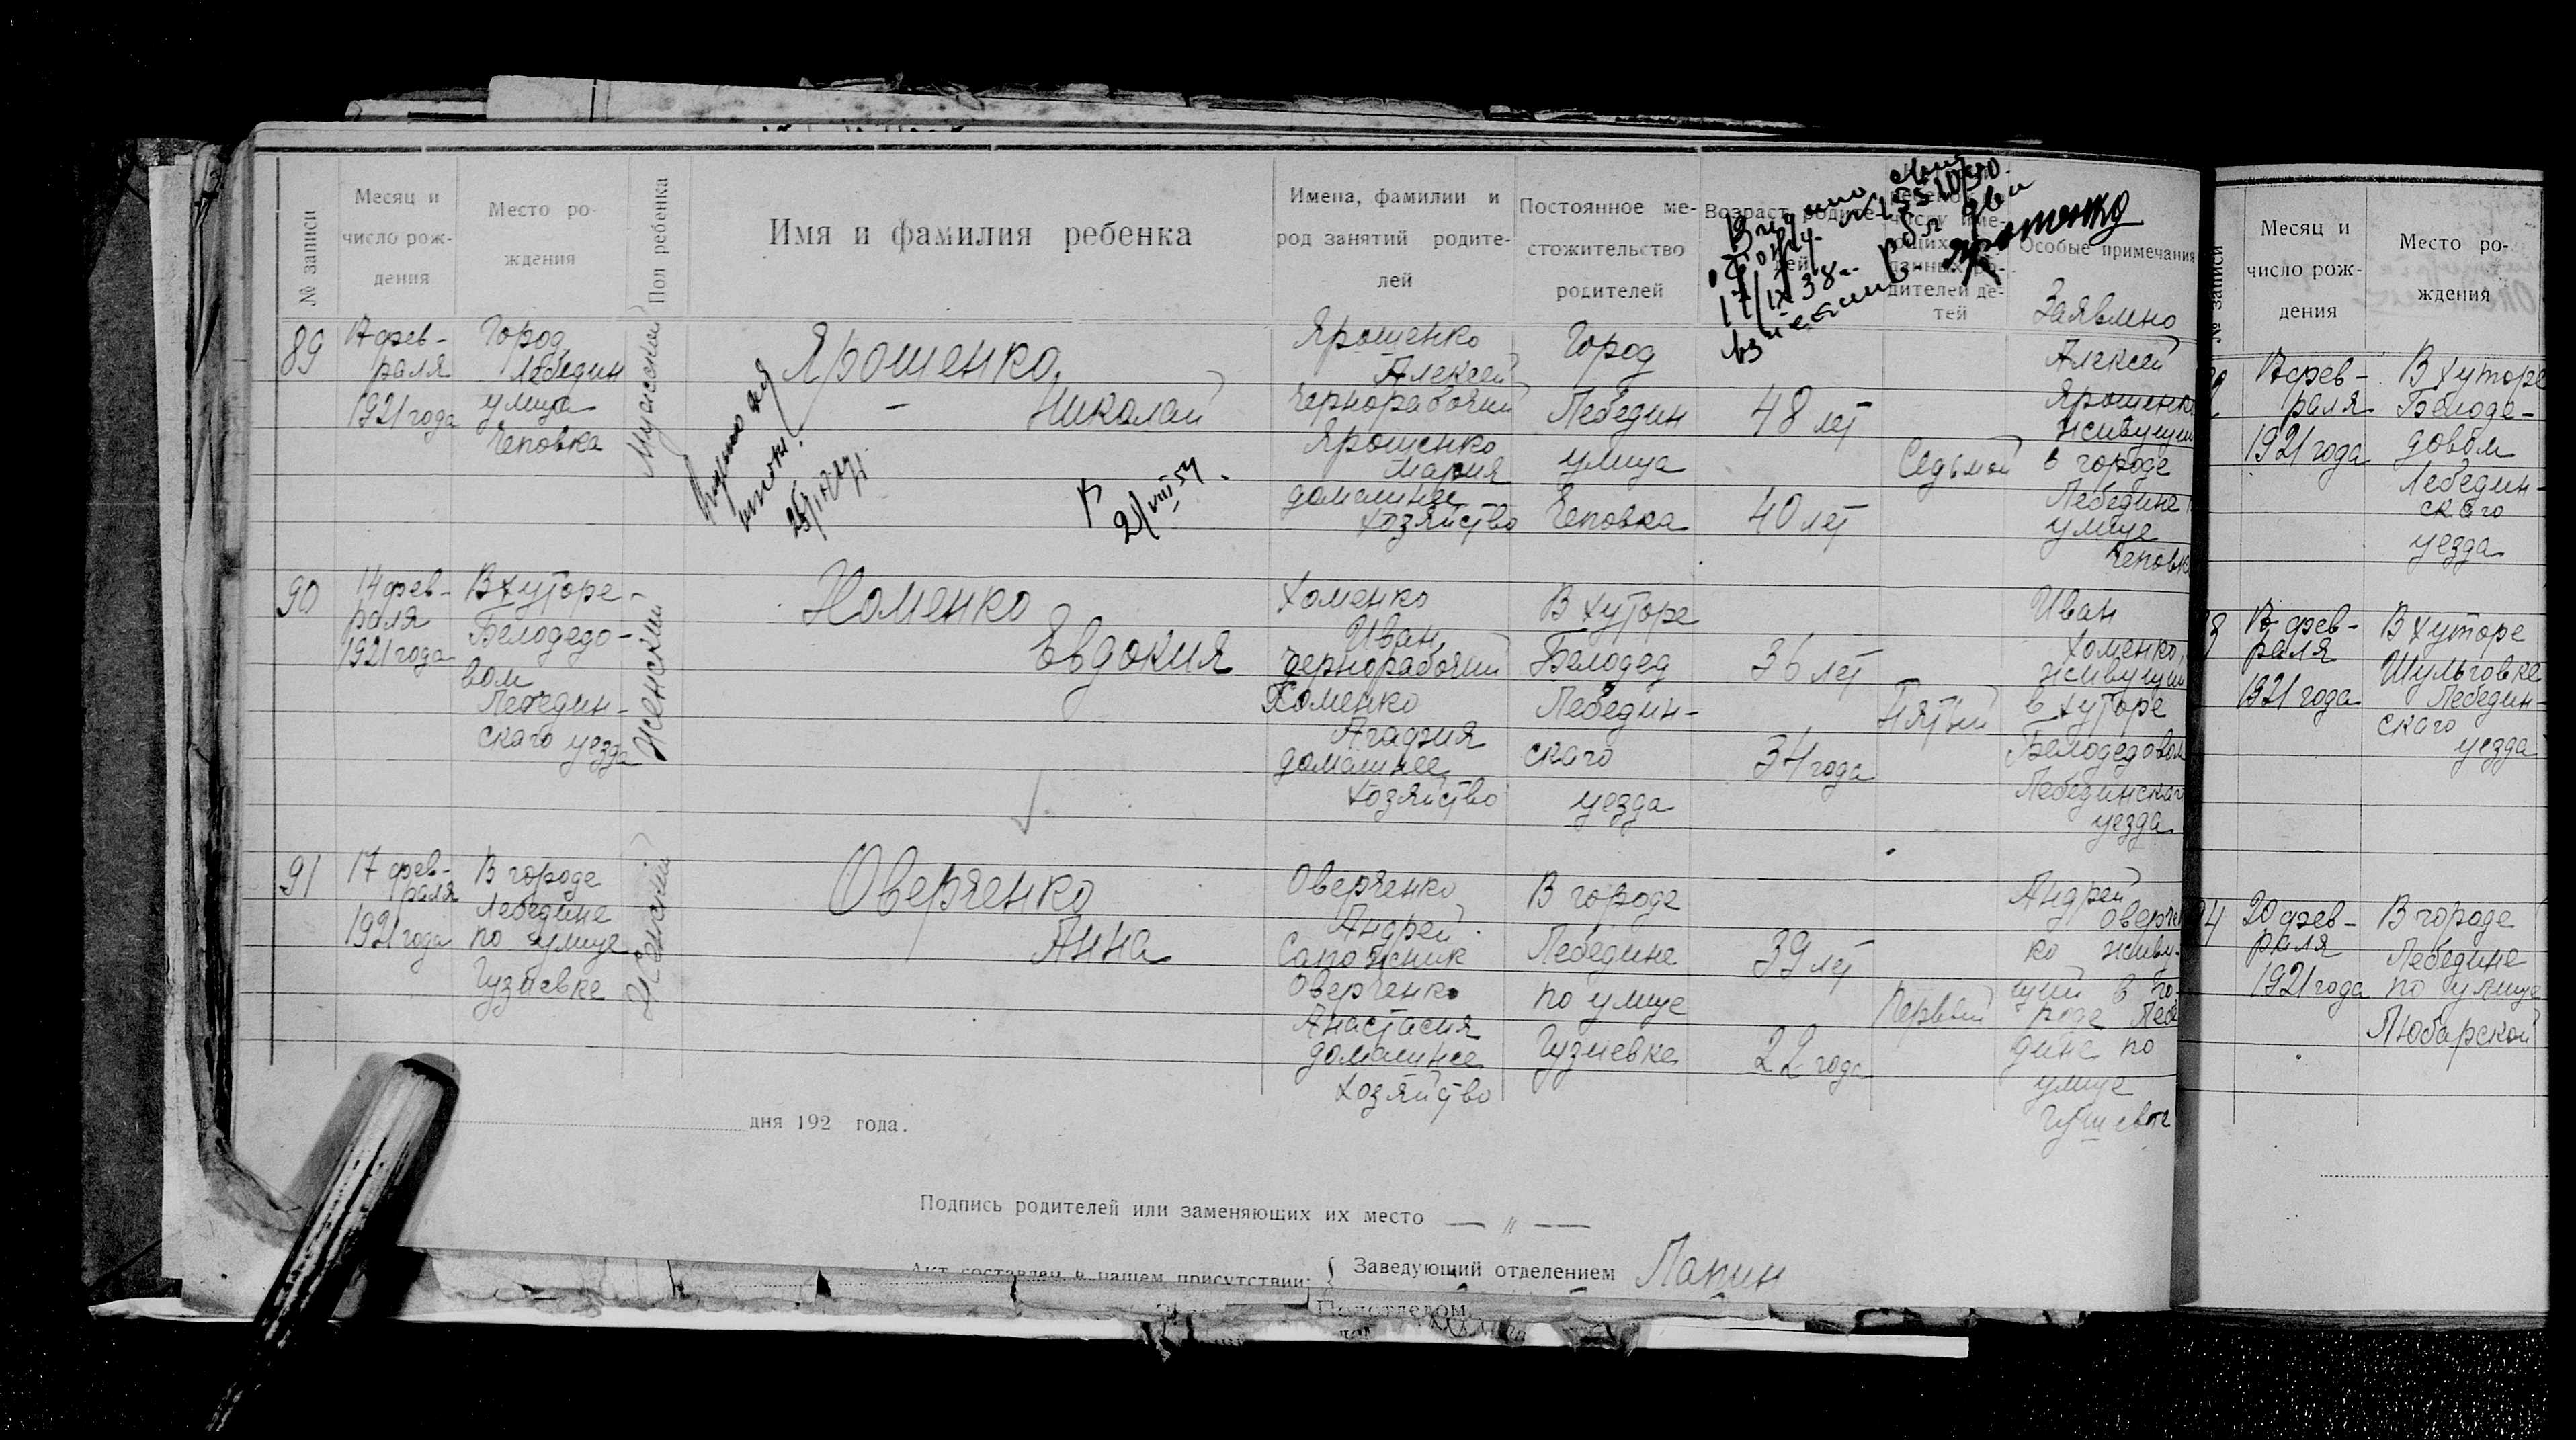 № записи
Месяц и число рождения
Место рождения
Пол ребенка
Имя и фамилия ребенка
Имена, фамилии и род занятий родителей
Постоянное местожительство родителей
Возраст родителей
дителей детей
Особые примечания
17/IX 38
Ярошенко
89
17 фев-
раля
1921 года
Город
Лебедин
улица
Чеповка
Мужской
Ярошенко
- Николай
21/VIII 54
Ярошенко
Алексей
чернорабочий
Ярошенко
Мария
домашнее
хозяйство
Город
Лебедин
улица
Чеповка
48 лет
40 лет
Седьмой
Заявлено
Алексей
Ярошенко
живущий
в городе
Лебедине
улице
Чеповке
90
14 фев-
раля
1921 года
В хуторе
Белодедо-
вом
Лебедин-
скаго уезда
Женский
Хоменко
Евдокия
Хоменко
Иван,
чернорабочий
Хоменко
Агафия
домашнее
хозяйство
В хуторе
Белодед
Лебедин-
скаго
уезда
36 лет
34 года
Пятый
Иван
Хоменко,
живущий
в хуторе
Белодедовом
Лебединскаго
уезда
91
17 фев-
раля
1921 года
В городе
Лебедине
по улице
Гузиевке
Женский
Оверченко
Анна
Оверченко
Андрей
Сапожник
Оверченко
Анастасия
домашнее
хозяйство
В городе
Лебедине
по улице
Гузиевке
39 лет
22 года
Первый
Андрей
Оверчен
ко живу-
щий в го-
роде Лебе
дине по
улице
дня 192 года.
Подпись родителей или заменяющих их место — „ —
Акт составлен в нашем присутствии:
Заведующий отделением Папин
Подотделом
№ записи
Месяц и число рождения
Место рождения
17 фев-
раля
1921 года
В хуторе
Белоде-
довом
Лебедин-
скаго
уезда
17 фев-
раля
1921 года
В хуторе
Шульговке
Лебедин-
скаго
уезда
20 фев-
раля
1921 года
В городе
Лебедине
по улице
Любарской